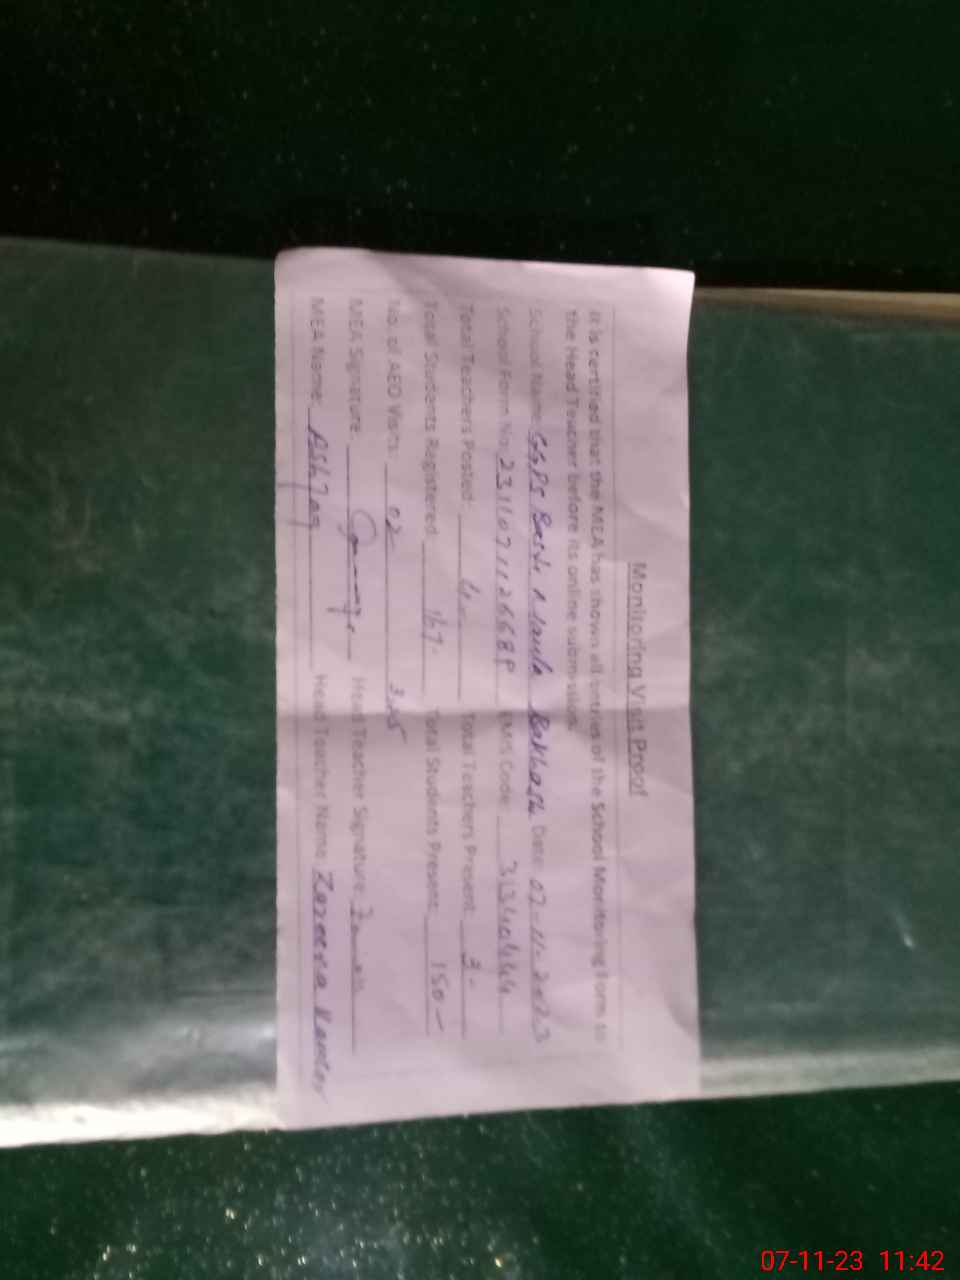 Monitoring Visit Proof
It is certified that the MEA has shown all entries of the School Monitoring Form to
the Head Teacher before its online submission.
School Name: GGPS Basti Maula Bakhash Date: 07-11-2023
School Form No: EMIS Code:
Total Teachers Posted: 4- Total Teachers Present: 3-
Total Students Registered: 167- Total Students Present: 150-
No. of AEO Visits: 02
MEA Signature: Head Teacher Signature:
MEA Name: Ashfaq Head Teacher Name:
07-11-23 11:42